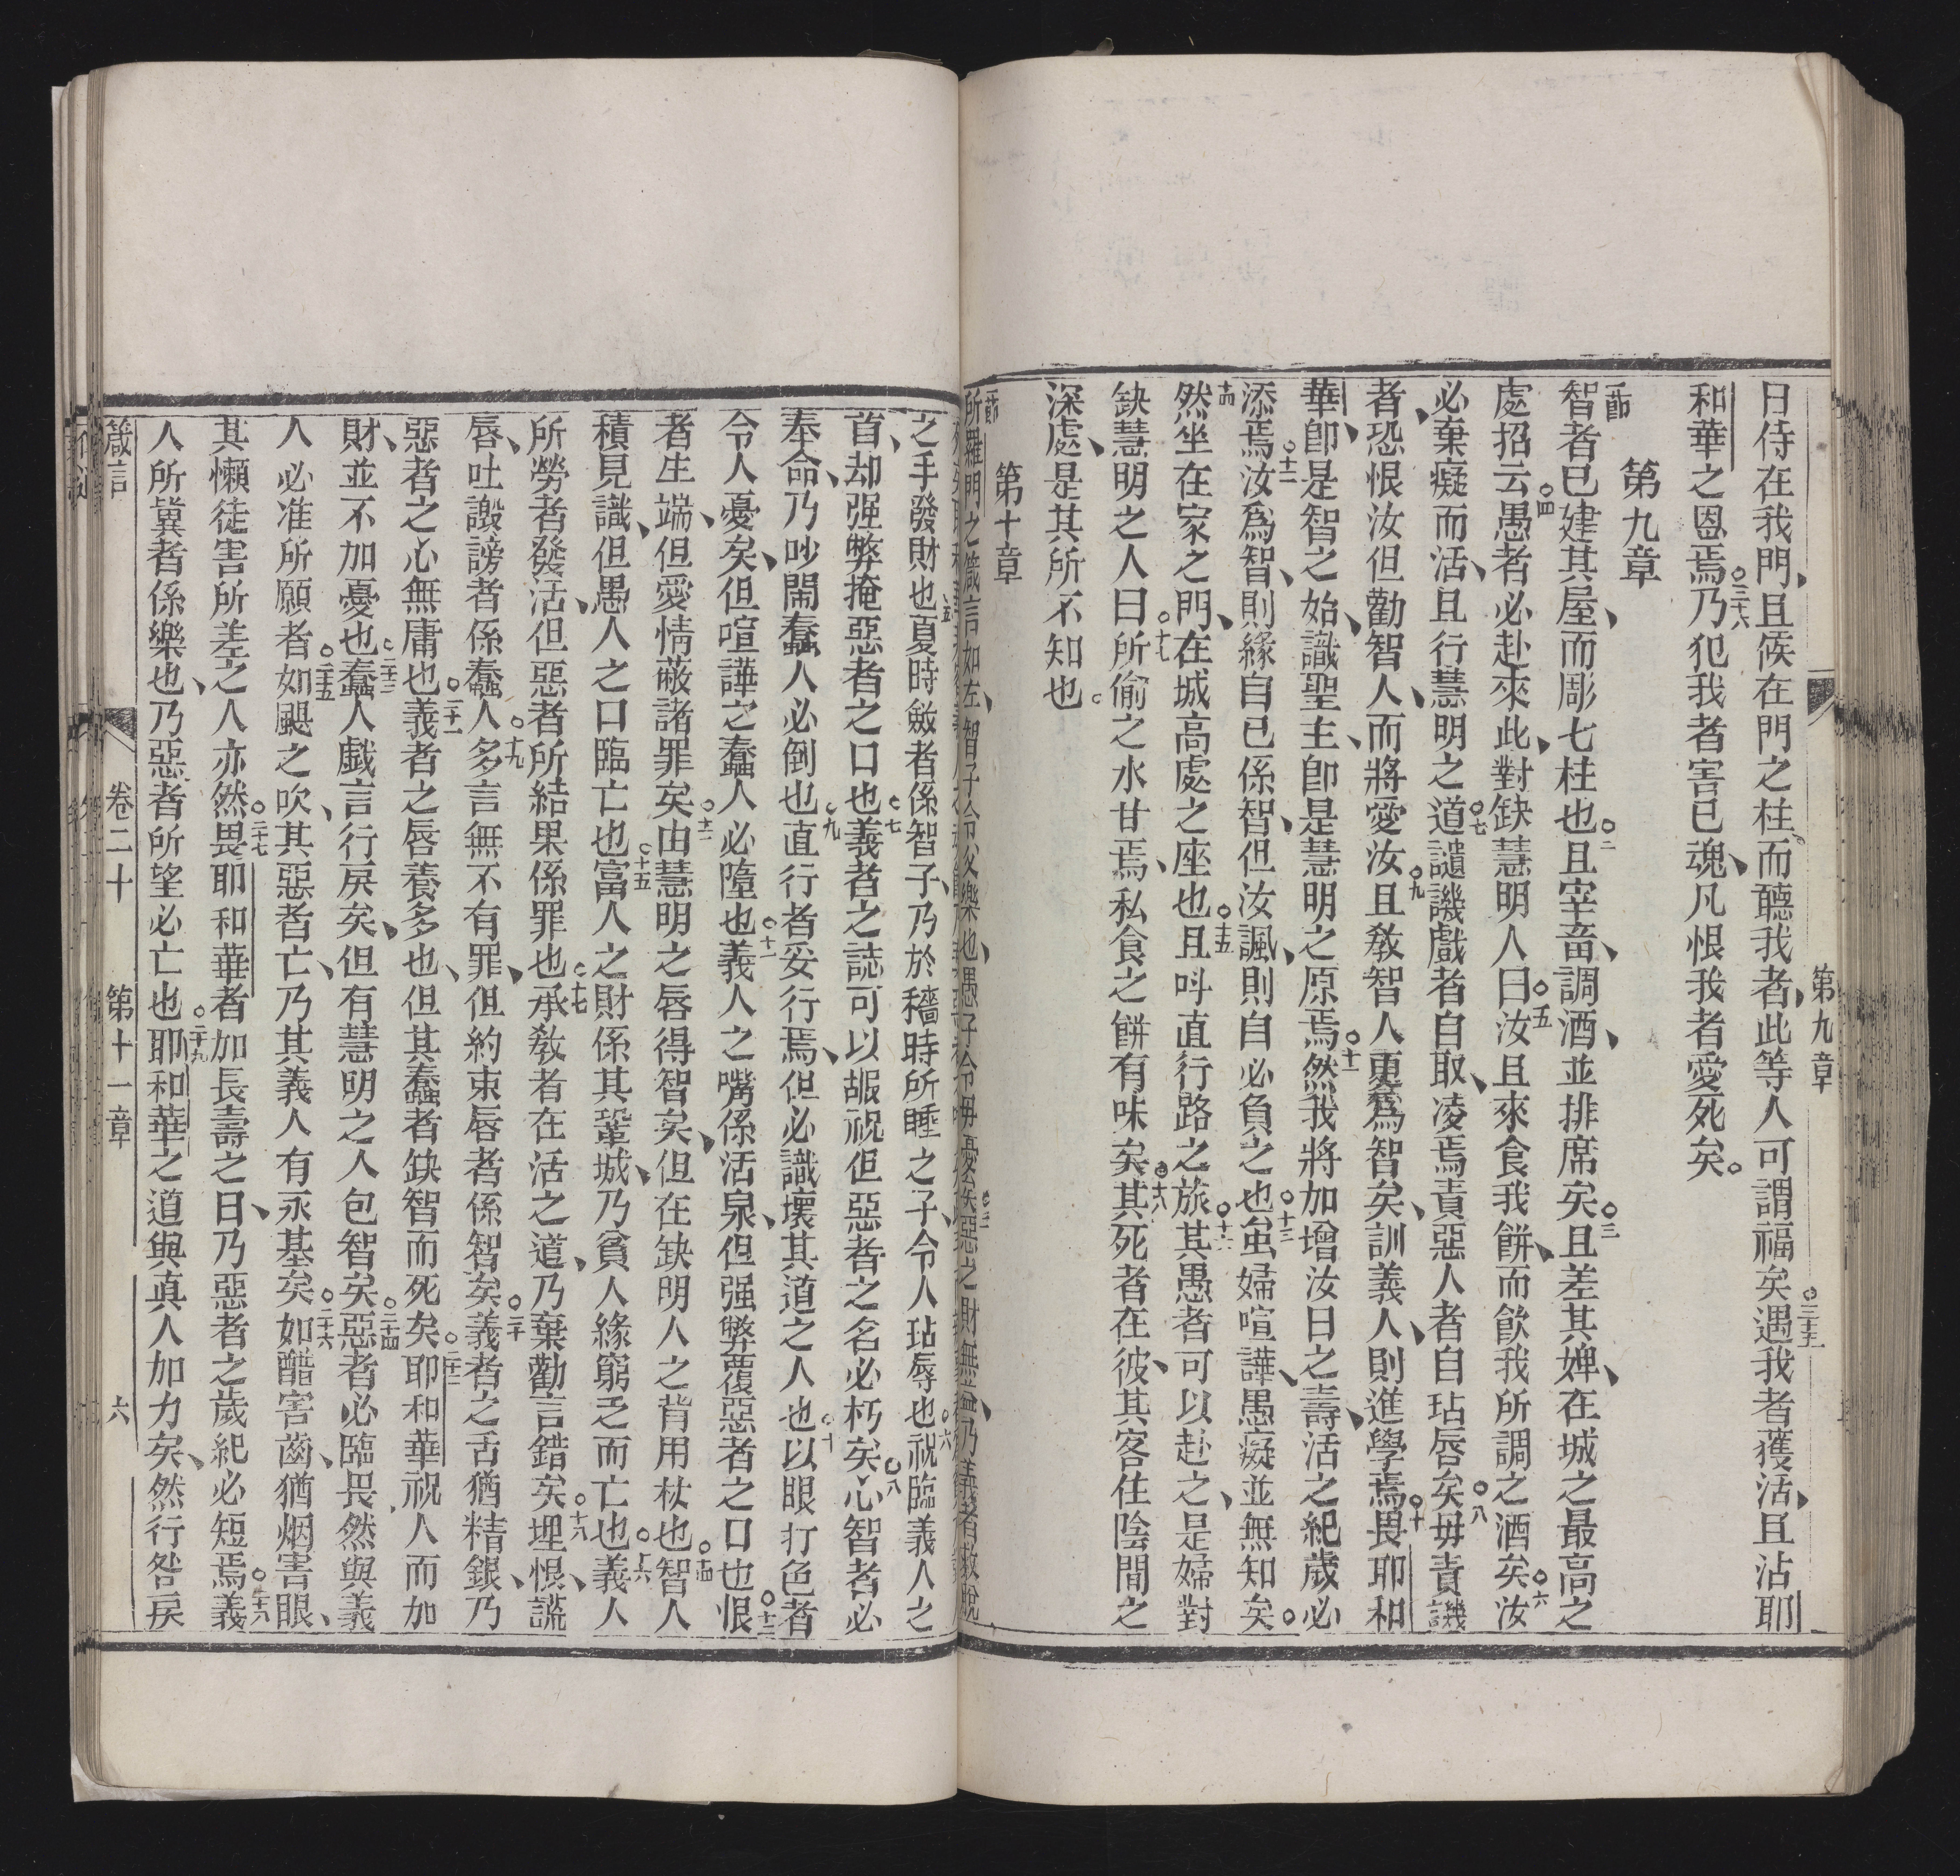 第九章
日侍在我門、且候在門之柱、而聽我者、此等人可謂福矣○三十五遇我者獲活、且沾耶
和華之恩焉○三十六乃犯我者害已魂、凡恨我者愛死矣○
第九章
一節智者已建其屋、而彫七柱也○二且宰畜、調酒、並排席矣○三且差其婢、在城之最高之
處招云○四愚者必赴來此、對缺慧明人曰○五汝且來食我餅、而飲我所調之酒矣○六汝
必棄癡而活、且行慧明之道○七譴譏戲者自取、凌焉責惡人者自玷唇矣○八毋責譏
者、恐恨汝但勸智人、而將愛汝○九且敎智人更為智矣、訓義人、則進學焉○十畏耶和
華、卽是智之始、識聖主、卽是慧明之原焉○十一然我將加增汝日之壽、活之紀歲必
添焉○十二汝為智、則緣自已係智、但汝諷、則自必負之也○十三蚩婦喧譁、愚癡並無知矣○
十四然坐在家之門、在城高處之座也○十五且呌直行路之旅○十六其愚者可以赴之、是婦對
缺慧明之人曰○十七所偷之水甘焉、私食之餅有味矣○十八其死者在彼、其客住陰間之
深處、是其所不知也○
第十章
一節所羅門之箴言如左、智子令父樂也、愚子令毋憂矣○二惡之財無益、乃義者救脫
之手發財也○五夏時斂者係智子、乃於穡時所睡之子、令人玷辱也○六祝臨義人之
首、却强弊掩惡者之口也○七義者之誌可以嘏祝但惡者之名必朽矣○八心智者必
奉命、乃吵鬧蠢人必倒也○九直行者妥行焉、但必識壞其道之人也○十以眼打色者
令人憂矣、但喧譁之蠢人必墮也○十一義人之嘴係活泉、但强弊覆惡者之口也○十二恨
者生端、但愛情蔽諸罪矣○十三由慧明之唇得智矣、但在缺明人之背用杖也○十四智人
積見識、但愚人之口臨亡也○十五富人之財係其鞏城、乃貧人緣窮乏而亡也○十六義人
所勞者發活、但惡者所結果係罪也○十七承敎者在活之道、乃棄勸言錯矣○十八埋恨、謊
唇、吐譭謗者係蠢人○十九多言無不有罪、但約束唇者係智矣○二十義者之舌猶精銀、乃
惡者之心無庸也○二十一義者之唇養多也、但其蠢者缺智而死矣○二十二耶和華祝人而加
財、並不加憂也○二十三蠢人戱言行戾矣、但有慧明之人包智矣○二十四惡者必臨畏、然與義
人必准所願者○二十五如颶之吹、其惡者亡、乃其義人有永基矣○二十六如醋害齒、猶烟害眼、
其懶徒害所差之人亦然○二十七畏耶和華者加長壽之日、乃惡者之歲紀必短焉○二十八義
人所冀者係樂也、乃惡者所望必亡也○二十九耶和華之道與真人加力矣、然行咎戾
箴言 卷二十 第十一章 六